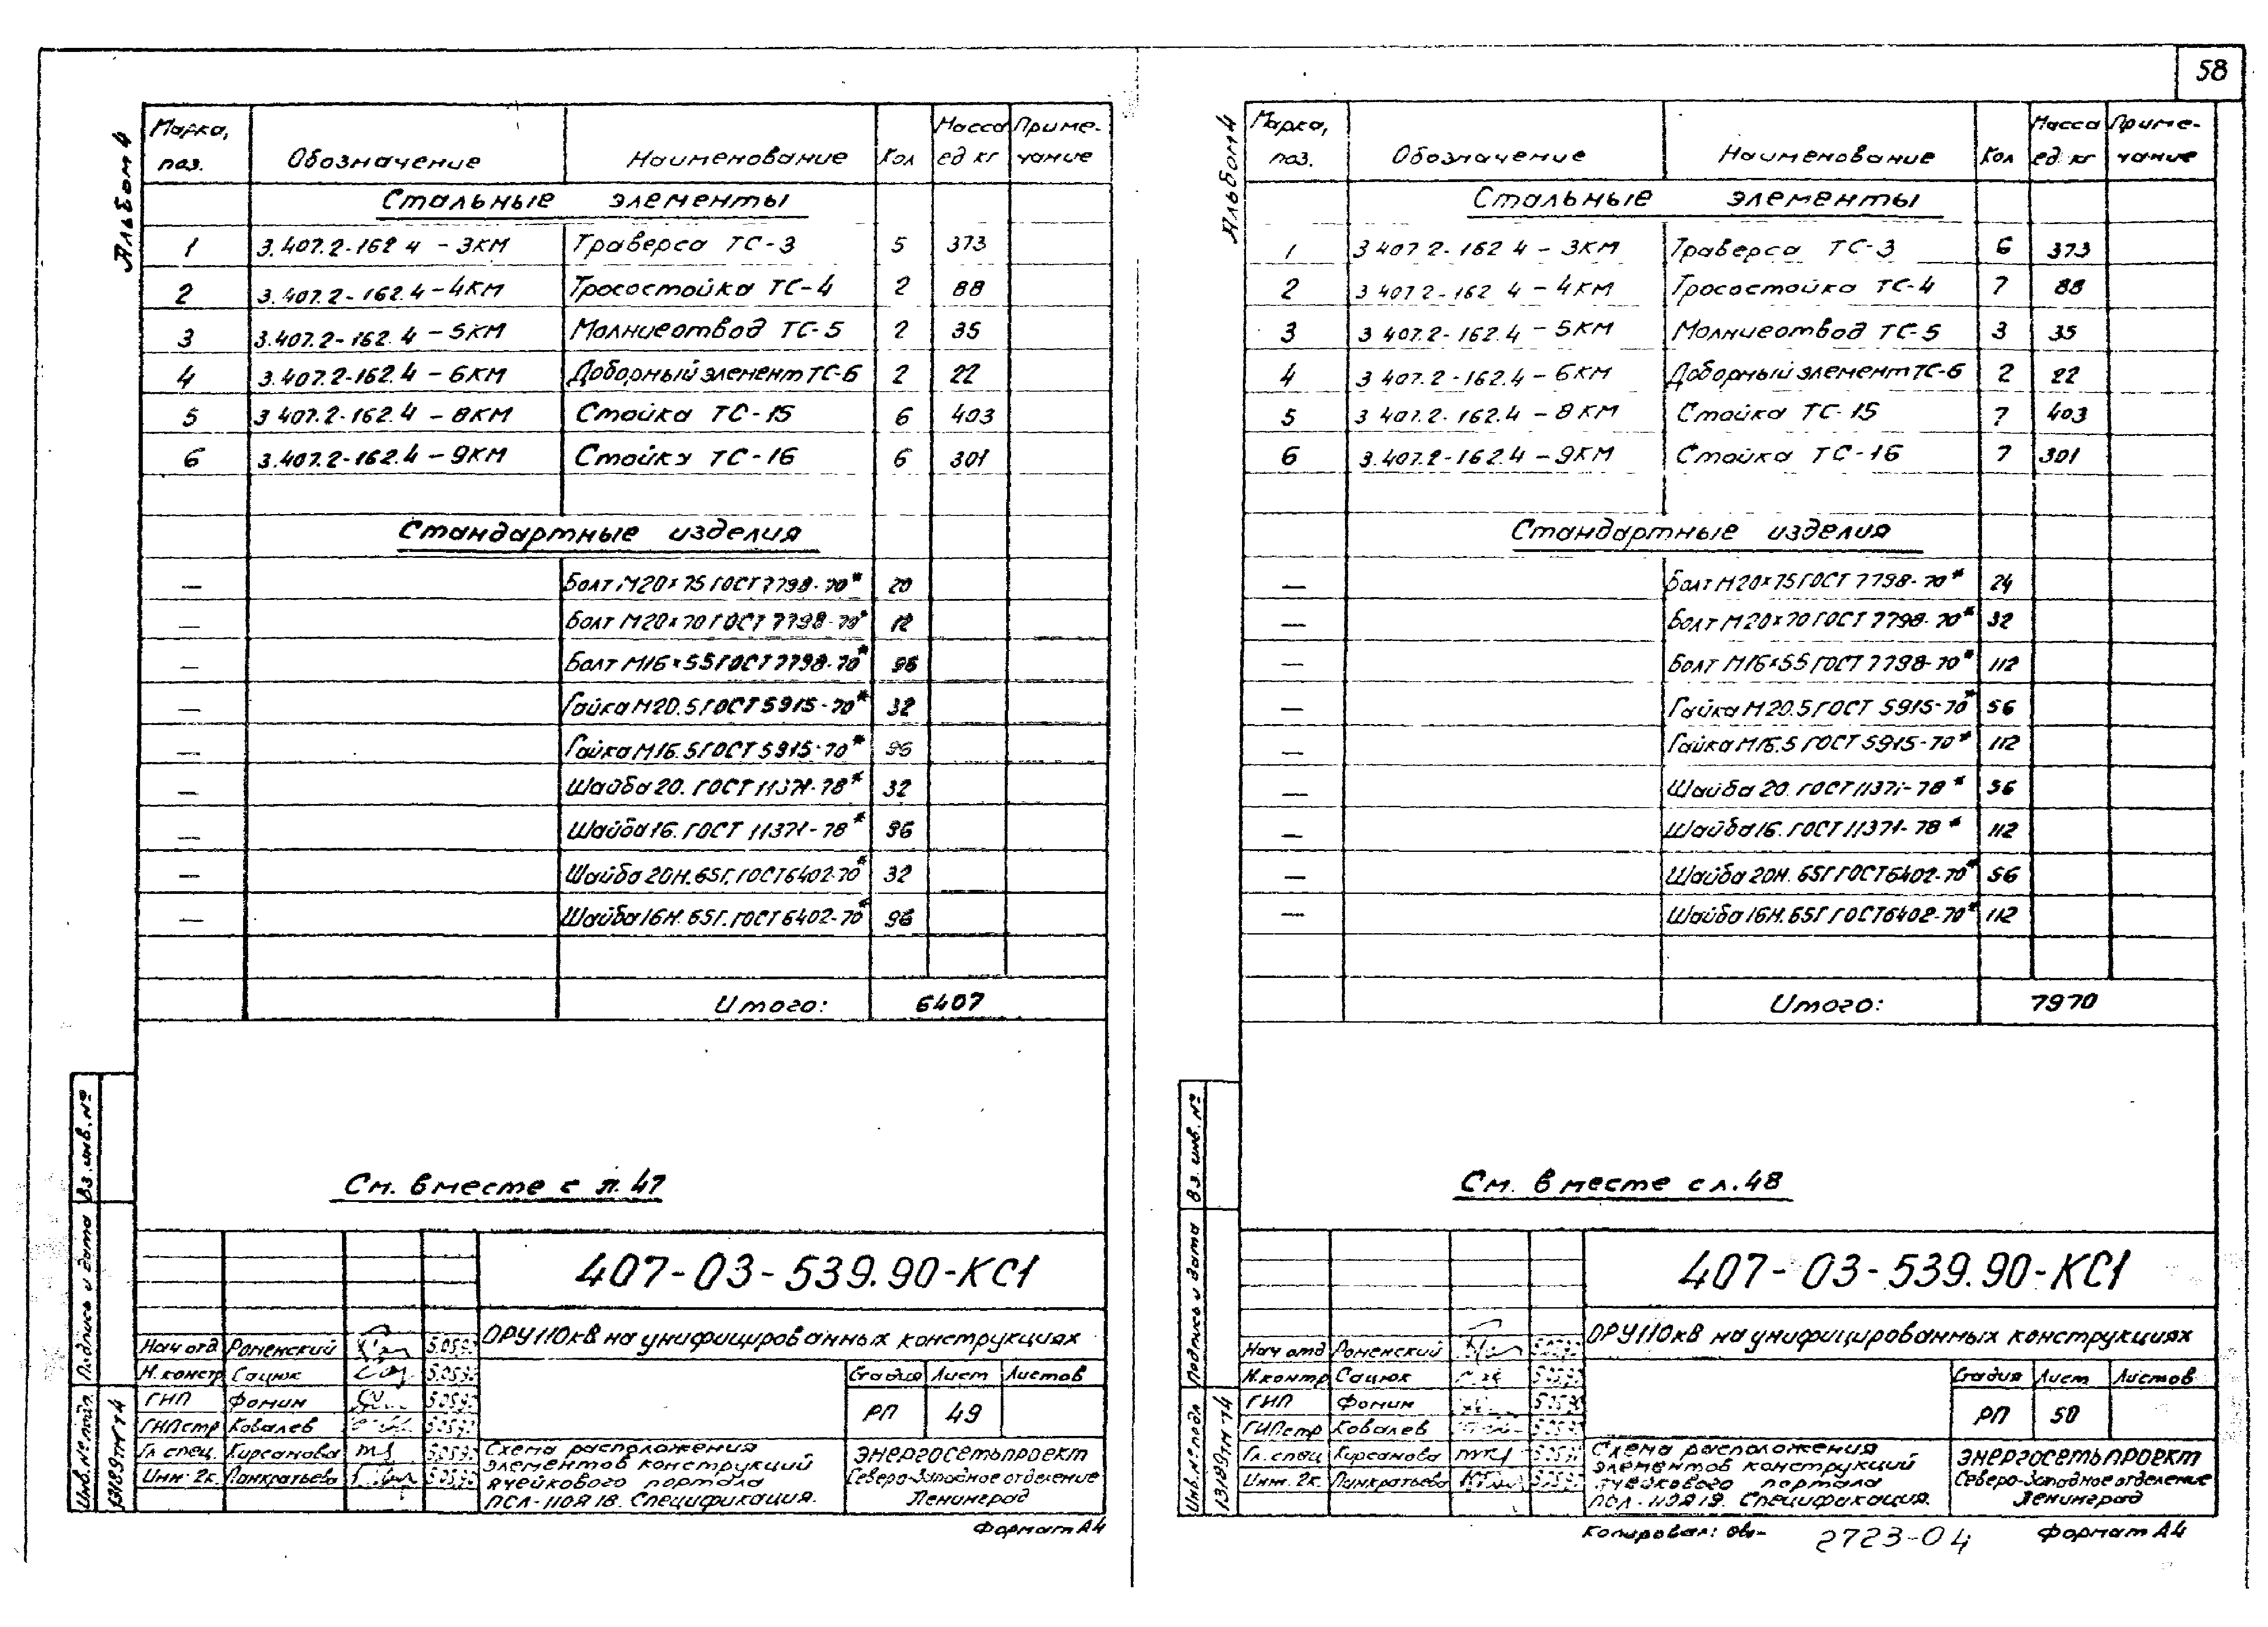 58
Альбом 4
Марка, поз. Обозначение Наименование Кол Масса ед кг Примечание
Стальные элементы
1 3.407.2-162 4 - 3КМ Траверса ТС-3 5 373
2 3.407.2-162.4 - 4КМ Тросостойка ТС-4 2 88
3 3.407.2-162.4 - 5КМ Молниеотвод ТС-5 2 35
4 3.407.2-162.4 - 6КМ Доборный элемент ТС-6 2 22
5 3 407.2-162.4 - 8КМ Стойка ТС-15 6 403
6 3.407.2-162.4 - 9КМ Стойка ТС-16 6 301
Стандартные изделия
— Болт М20×75 ГОСТ 7798-70* 20
— Болт М20×70 ГОСТ 7798-70* 12
— Болт М16×55 ГОСТ 7798-70* 96
— Гайка М20.5 ГОСТ 5915-70* 32
— Гайка М16.5 ГОСТ 5915-70* 96
— Шайба 20. ГОСТ 11371-78* 32
— Шайба 16. ГОСТ 11371-78* 96
— Шайба 20Н.65Г. ГОСТ 6402-70* 32
— Шайба 16Н.65Г. ГОСТ 6402-70* 96
Итого: 6407
См. вместе с л. 47
407-03-539.90-КС1
ОРУ 110кВ на унифицированных конструкциях
Нач отд Роменский
Н.констр Сацюк
ГИП Фомин
ГИПстр Ковалев
Гл спец. Кирсанова
Инж. 2к. Панкратьева
Стадия Лист Листов
РП 49
Схема расположения
элементов конструкций
ячейкового портала
ПСЛ-110Я18. Спецификация.
Энергосетьпроект
Северо-Западное отделение
Ленинград
Формат А4
Инв.№ подл. Подпись и дата Вз.инв.№
13189тм т4
Альбом 4
Марка, поз. Обозначение Наименование Кол Масса ед кг Примечание
Стальные элементы
1 3 407 2-162 4 - 3КМ Траверса ТС-3 6 373
2 3 407 2-162 4 - 4КМ Тросостойка ТС-4 7 88
3 3 407.2-162.4 - 5КМ Молниеотвод ТС-5 3 35
4 3 407.2-162.4 - 6КМ Доборный элемент ТС-6 2 22
5 3 407.2-162.4 - 8КМ Стойка ТС-15 7 403
6 3.407.2-162.4 - 9КМ Стойка ТС-16 7 301
Стандартные изделия
— Болт М20×75 ГОСТ 7798-70* 24
— Болт М20×70 ГОСТ 7798-70* 32
— Болт М16×55 ГОСТ 7798-70* 112
— Гайка М20.5 ГОСТ 5915-70* 56
— Гайка М16.5 ГОСТ 5915-70* 112
— Шайба 20. ГОСТ 11371-78* 56
— Шайба 16. ГОСТ 11371-78* 112
— Шайба 20Н.65Г ГОСТ 6402-70* 56
— Шайба 16Н.65Г ГОСТ 6402-70* 112
Итого: 7970
См. вместе с л. 48
407-03-539.90-КС1
ОРУ 110кВ на унифицированных конструкциях
Нач отд Роменский
Н.контр Сацюк
ГИП Фомин
ГИПстр Ковалев
Гл. спец Кирсанова
Инж. 2к. Панкратьева
Стадия Лист Листов
РП 50
Схема расположения
элементов конструкций
ячейкового портала
ПСЛ-110Я19. Спецификация.
Энергосетьпроект
Северо-Западное отделение
Ленинград
Инв.№ подл Подпись и дата Вз. инв. №
13189тм т4
Копировал: 2723-04 Формат А4